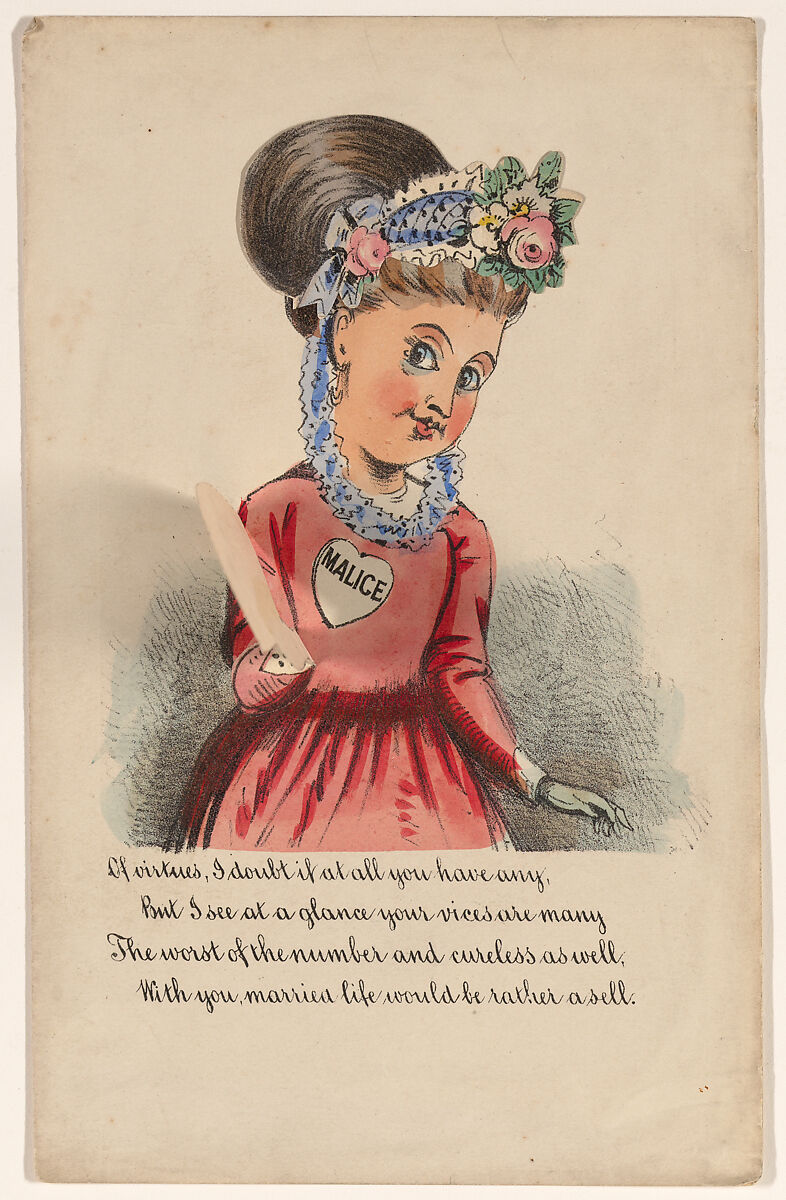 MALICE
Of virtues, I doubt if at all you have any,
But I see at a glance your vices are many
The worst of the number and cureless as well,
With you, married life would be rather a sell.